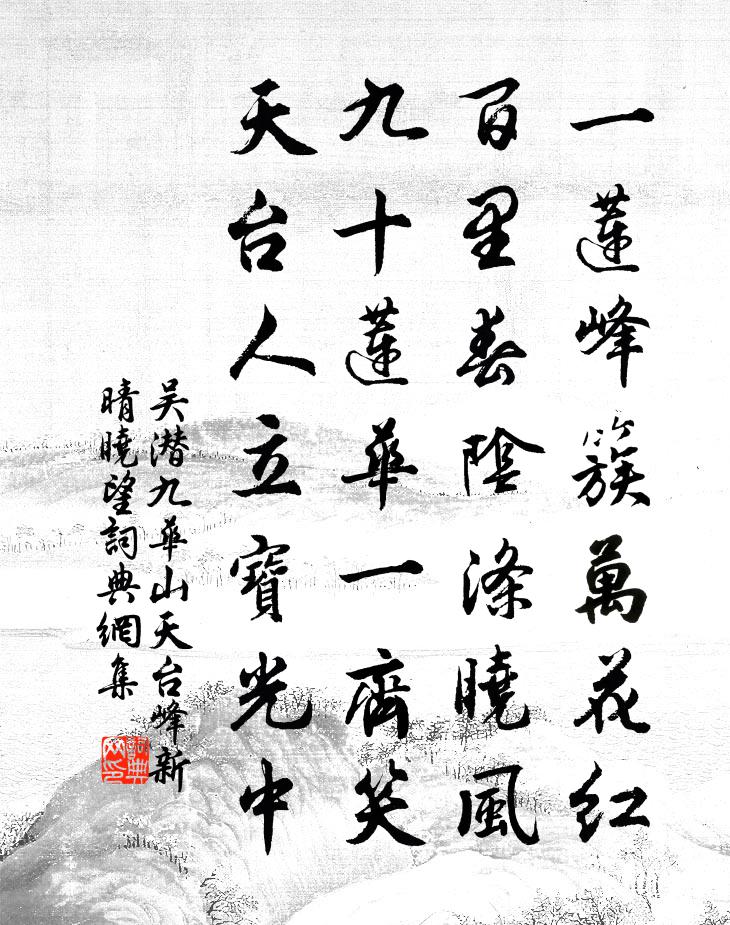 一蓮峰簇萬花紅
百里春陰滌曉風
九十蓮華一齊笑
天台人立寶光中
吳潛九華山天台峰新
晴曉望詞典網集